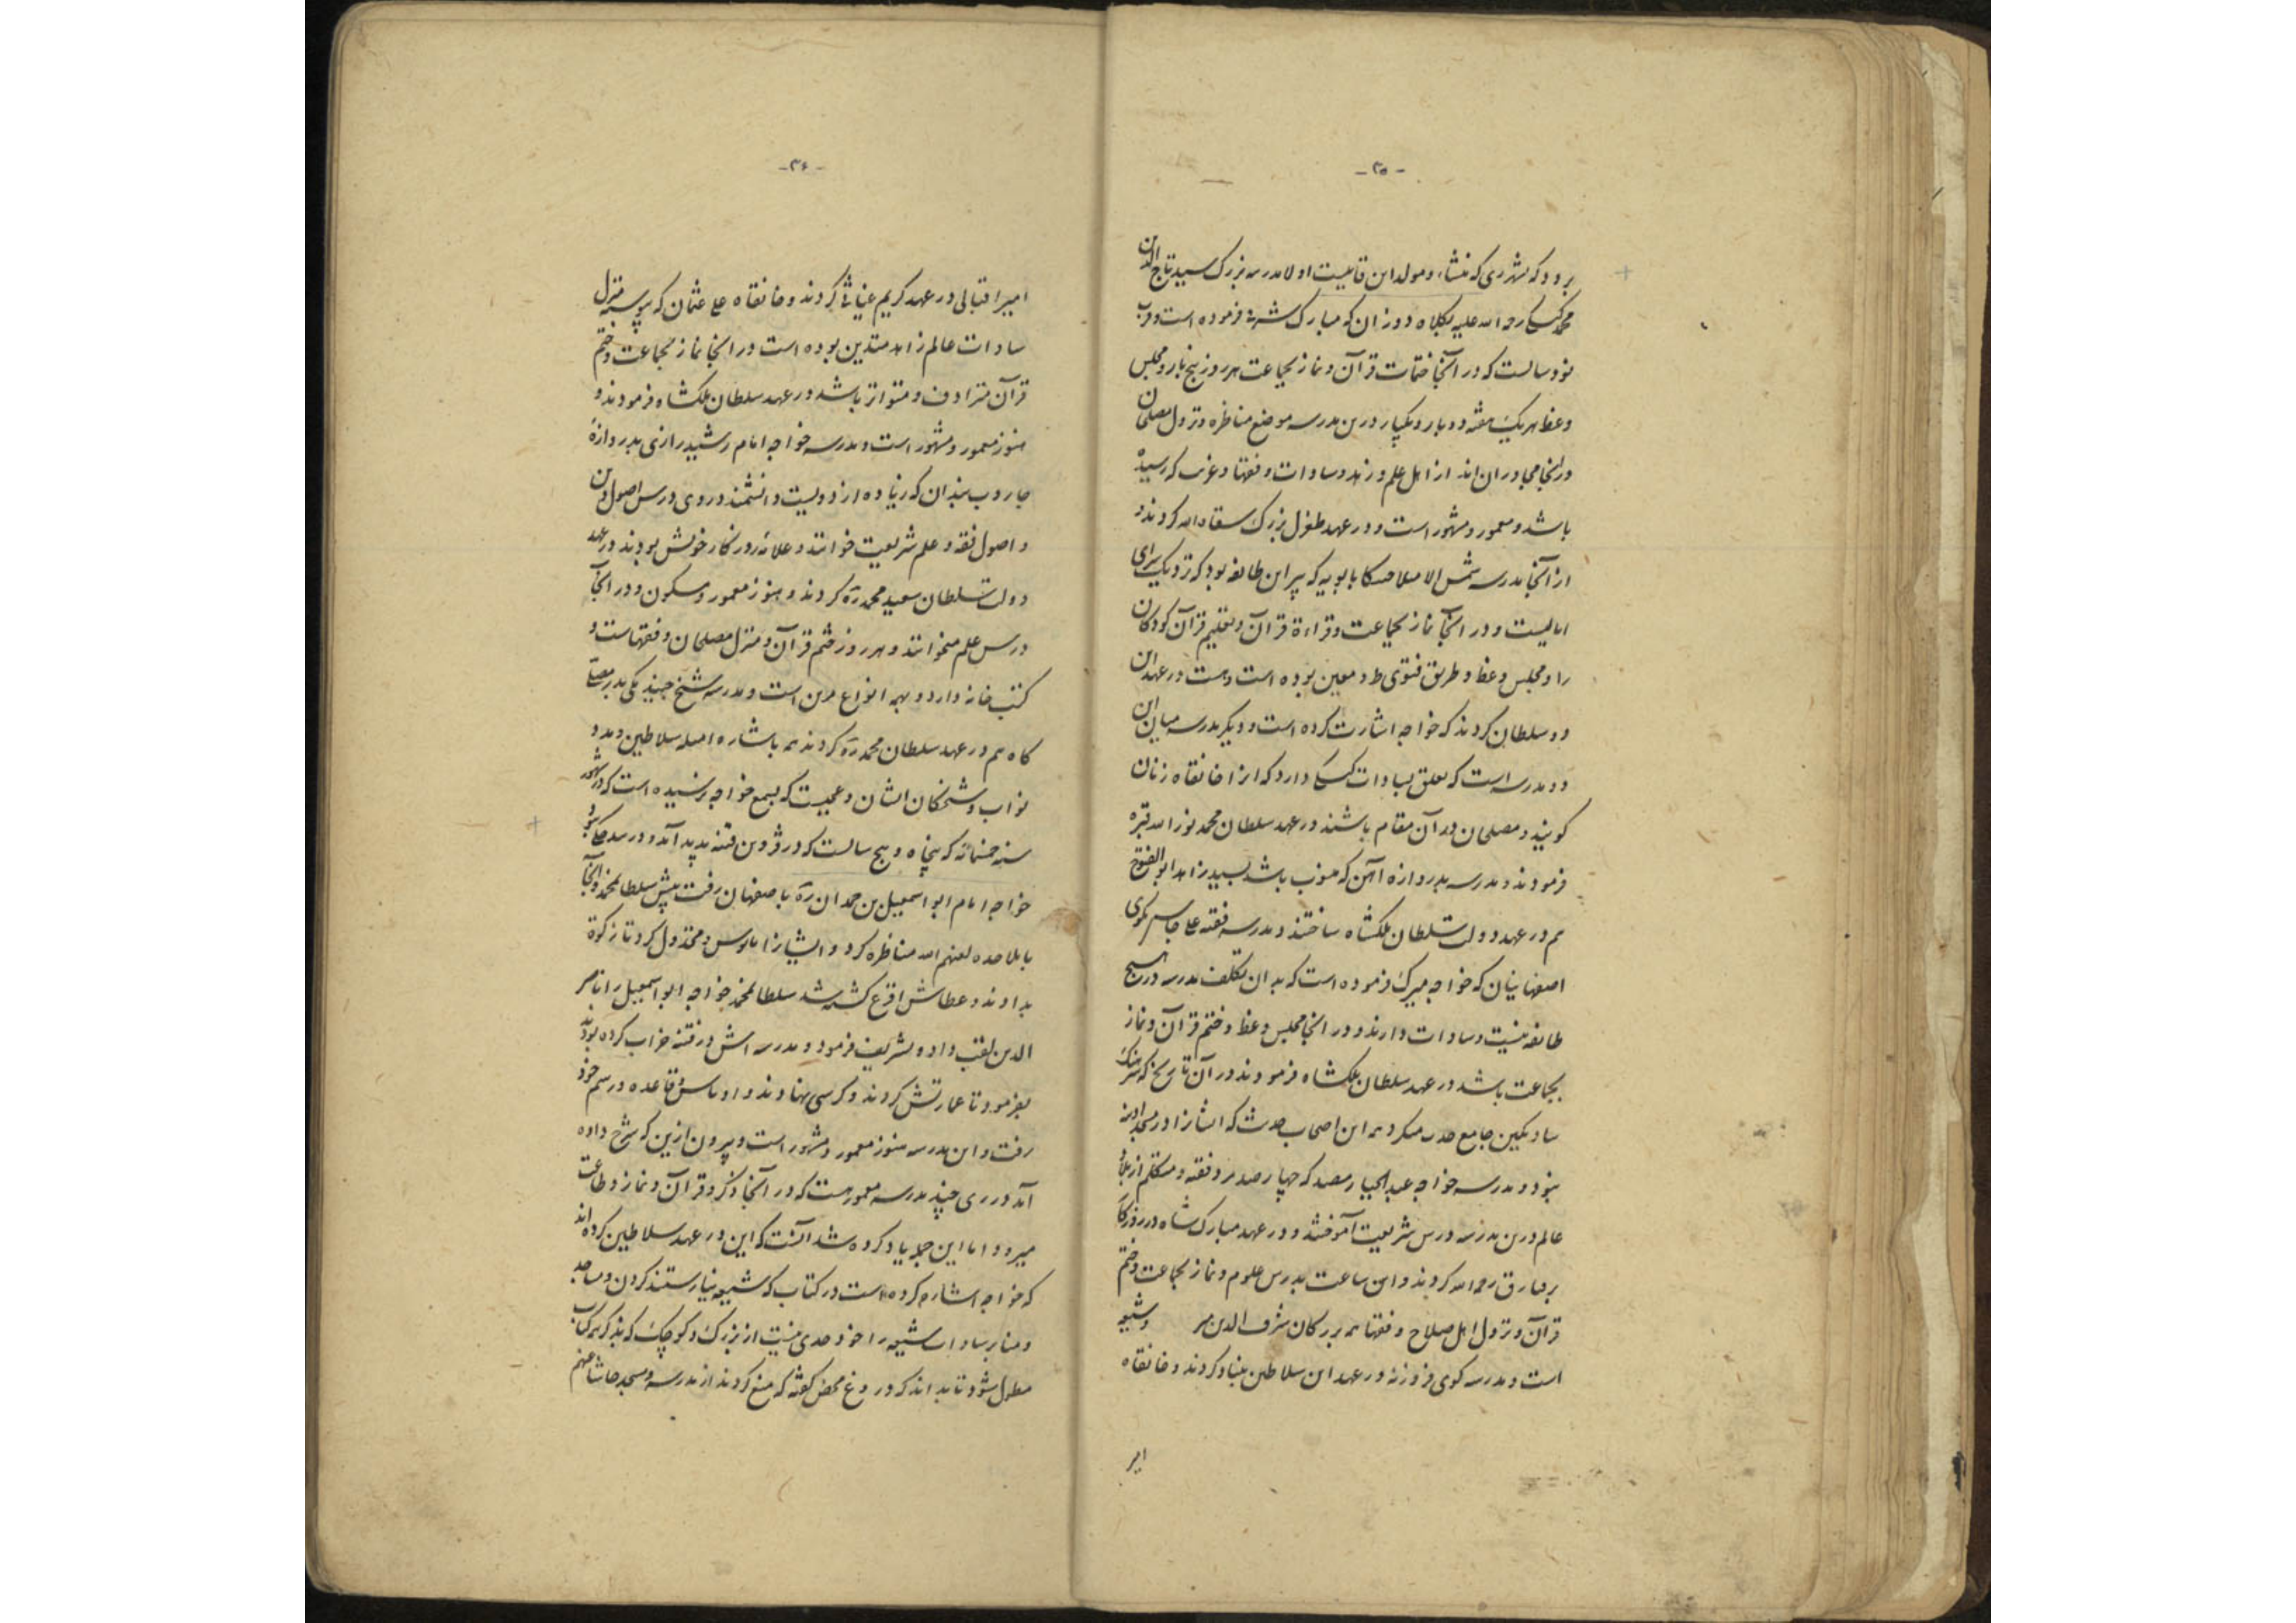 - ۳۵ -
برود که شهر ری که منشاء و مولد این قایلست اولا مدرسه بزرگ سید تاج الدین
محمد کیسکی رحمة الله علیه بکلاه دوزان که مبارک شرفی فرموده است و قرب
نود سالست که در آنجا ختمات قرآن و نماز بجماعت هر روز پنج بار و مجلس
وعظ هر یک هفته دو بار و یکبار درین مدرسه موضع مناظره و نزول مصلحان
در آنجا مجاوران اند از اهل علم و زهد و سادات و فقها و غربا که رسیده
باشد و معمور و مشهور است و در عهد طغرل بزرگ سقاه الله کردند و
از آنجا مدرسه شمس الاسلام حسکا بابویه که پیر این طایفه بود که نزدیک سرای
ایالیست و در آنجا نماز بجماعت و قراءة قرآن و تعلیم قرآن کودکان
را و مجلس وعظ و طریق فتوی ط و معین بوده است و هست در عهد این
دو سلطان کردند که خواجه اشارت کرده است و دیگر مدرسه میان این
دو مدرسه است که تعلق بسادات کیسکی دارد که از خانقاه زنان
گویند و مصلحان در آن مقام باشند در عهد سلطان محمد نور الله قبره
فرمودند و مدرسه بدروازه آهن که منسوب باشد بسید زاهد ابو الفتوح
هم در عهد دولت سلطان ملکشاه ساختند و مدرسه فقیه علی جاسبی بکوی
اصفهانیان که خواجه میرک فرموده است که بدان تکلف مدرسه در هیچ
طایفه نیست و سادات دارند و در آنجا مجلس وعظ و ختم قرآن و نماز
بجماعت باشد در عهد سلطان ملکشاه فرمودند در آن تاریخ که سرهنگ
ساوتکین جامع میکرد این اصحاب حدیث که ایشانرا در مسجد آدینه
نبود و مدرسه خواجه عبد الجبار مفید که چهارصد مرد فقیه و متکلم از بلاد
عالم درین مدرسه درس شریعت آموختند و در عهد مبارک شاه در روزگار
برکیارق رحمه الله کردند و این ساعت بدرس علوم و نماز بجماعت و ختم
قرآن و نزول اهل صلاح و فقها شرف الدین و شیعه
است و مدرسه کوی فیروزه در عهد این سلاطین بنیاد کردند و خانقاه
امیر
- ۳۶ -
امیر اقبالی در عهد کریم غیاثی کردند و خانقاه علی عثمان که پیوسته منزل
سادات عالم زاهد متدین بوده است و در آنجا نماز بجماعت و ختم
قرآن مترادف و متواتر باشد در عهد سلطان ملکشاه فرمودند و
هنوز معمور و مشهور است و مدرسه خواجه امام رشید رازی بدروازه
جاروب بندان که زیاده از دویست دانشمند در وی درس اصول دین
و اصول فقه و علم شریعت خوانند و علامه روزگار خویش بودند در عهد
دولت سلطان سعید محمد رَه کردند و هنوز معمور و مسکون و در آنجا
درس علم میخوانند و هر روز ختم قرآن و منزل مصلحان و فقهاست و
کتب خانه دارد و بهمه انواع مزین است و مدرسه شیخ حیدر مکی بدر مصلی
گاه هم در عهد سلطان محمد رَه کردند باشاره سلاطین و مدد
نواب و شحنگان ایشان و عجبست که بسمع خواجه نرسیده است که در شهور
سنه خمسمائه که پنجاه و پنج سالست که در قزوین فتنه پدید آمد و در
خواجه امام ابو اسمعیل بن حمدان رَه باصفهان رفت پیش سلطان محمد و آنجا
با ملاحده لعنهم الله مناظره کرد و ایشانرا مایوس و مخذول کرد تا زکوة
بدادند و عطاش اقرع کشته شد سلطان محمد خواجه ابو اسمعیل را ناصر
الدین لقب داد و تشریف فرمود و مدرسه اش در فتنه خراب کرده بودند
بفرمود تا عمارتش کردند و کرسی بنهادند و او با سر قاعده و رسم خود
رفت و این مدرسه هنوز معمور و مشهور است و بیرون ازین که شرح داده
آمد در ری چند مدرسه معمور هست که در آنجا ذکر و قرآن و نماز و طاعت
میرود اما این جمله یاد کرده شد آنست که این در عهد سلاطین کرده اند
که خواجه اشاره کرده است در کتاب که شیعه نیارستند کردن و مساجد
و منابر سادات شیعه را خود حدی نیست از بزرگ و کوچک که بذکر همه کتاب
مطول شود تا بداند که دروغ محض گفته که منع کردند از مدرسه و مسجد حاشا عنهم